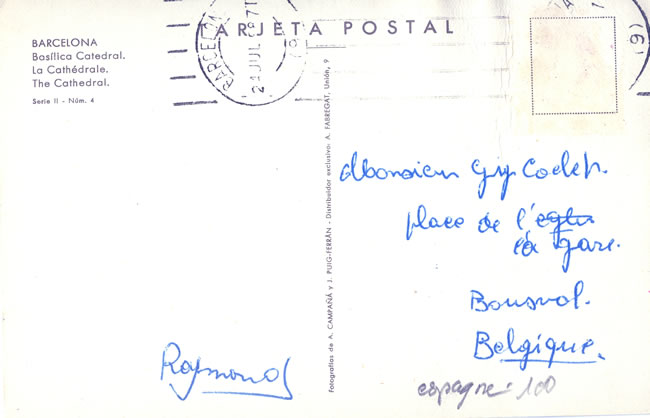 BARCELONA
Basílica Catedral.
La Cathédrale.
The Cathedral.
Serie II - Núm. 4
TARJETA POSTAL
BARCELONA
21 JUL
Fotografías de A. CAMPAÑÁ y J. PUIG-FERRÁN - Distribuidor exclusivo: A. FABREGAT, Unión, 9
Monsieur Guy
place de l'eglis
la gare.
Bousval.
Belgique.
espagne: 100
Raymond